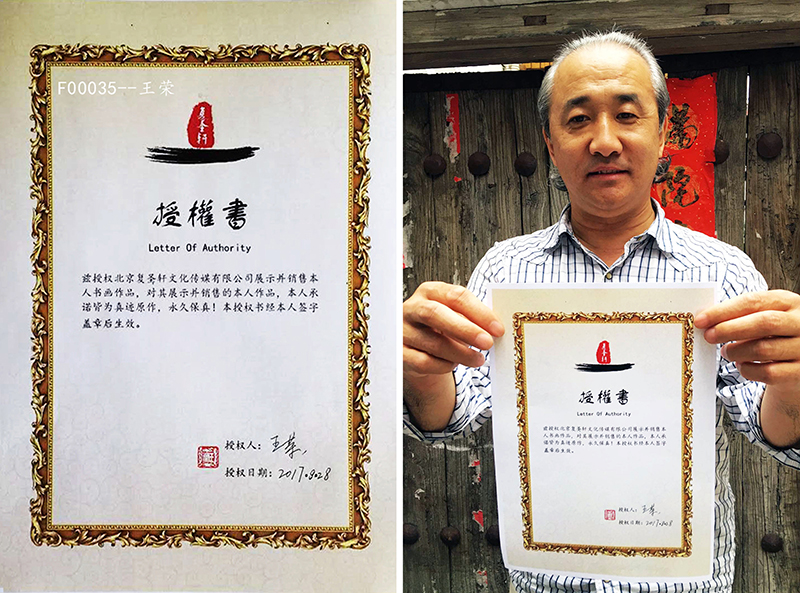 F00035--王荣
復荃軒
授權書
Letter Of Authority
兹授权北京复荃轩文化传媒有限公司展示并销售本
人书画作品，对其展示并销售的本人作品，本人承
诺皆为真迹原作，永久保真！本授权书经本人签字
盖章后生效。
授权人：王荣
授权日期：2017.8.28
授權書
Letter Of Authority
兹授权北京复荃轩文化传媒有限公司展示并销售本
人书画作品，对其展示并销售的本人作品，本人承
诺皆为真迹原作，永久保真！本授权书经本人签字
盖章后生效。
授权人：王荣
授权日期：2017.8.28